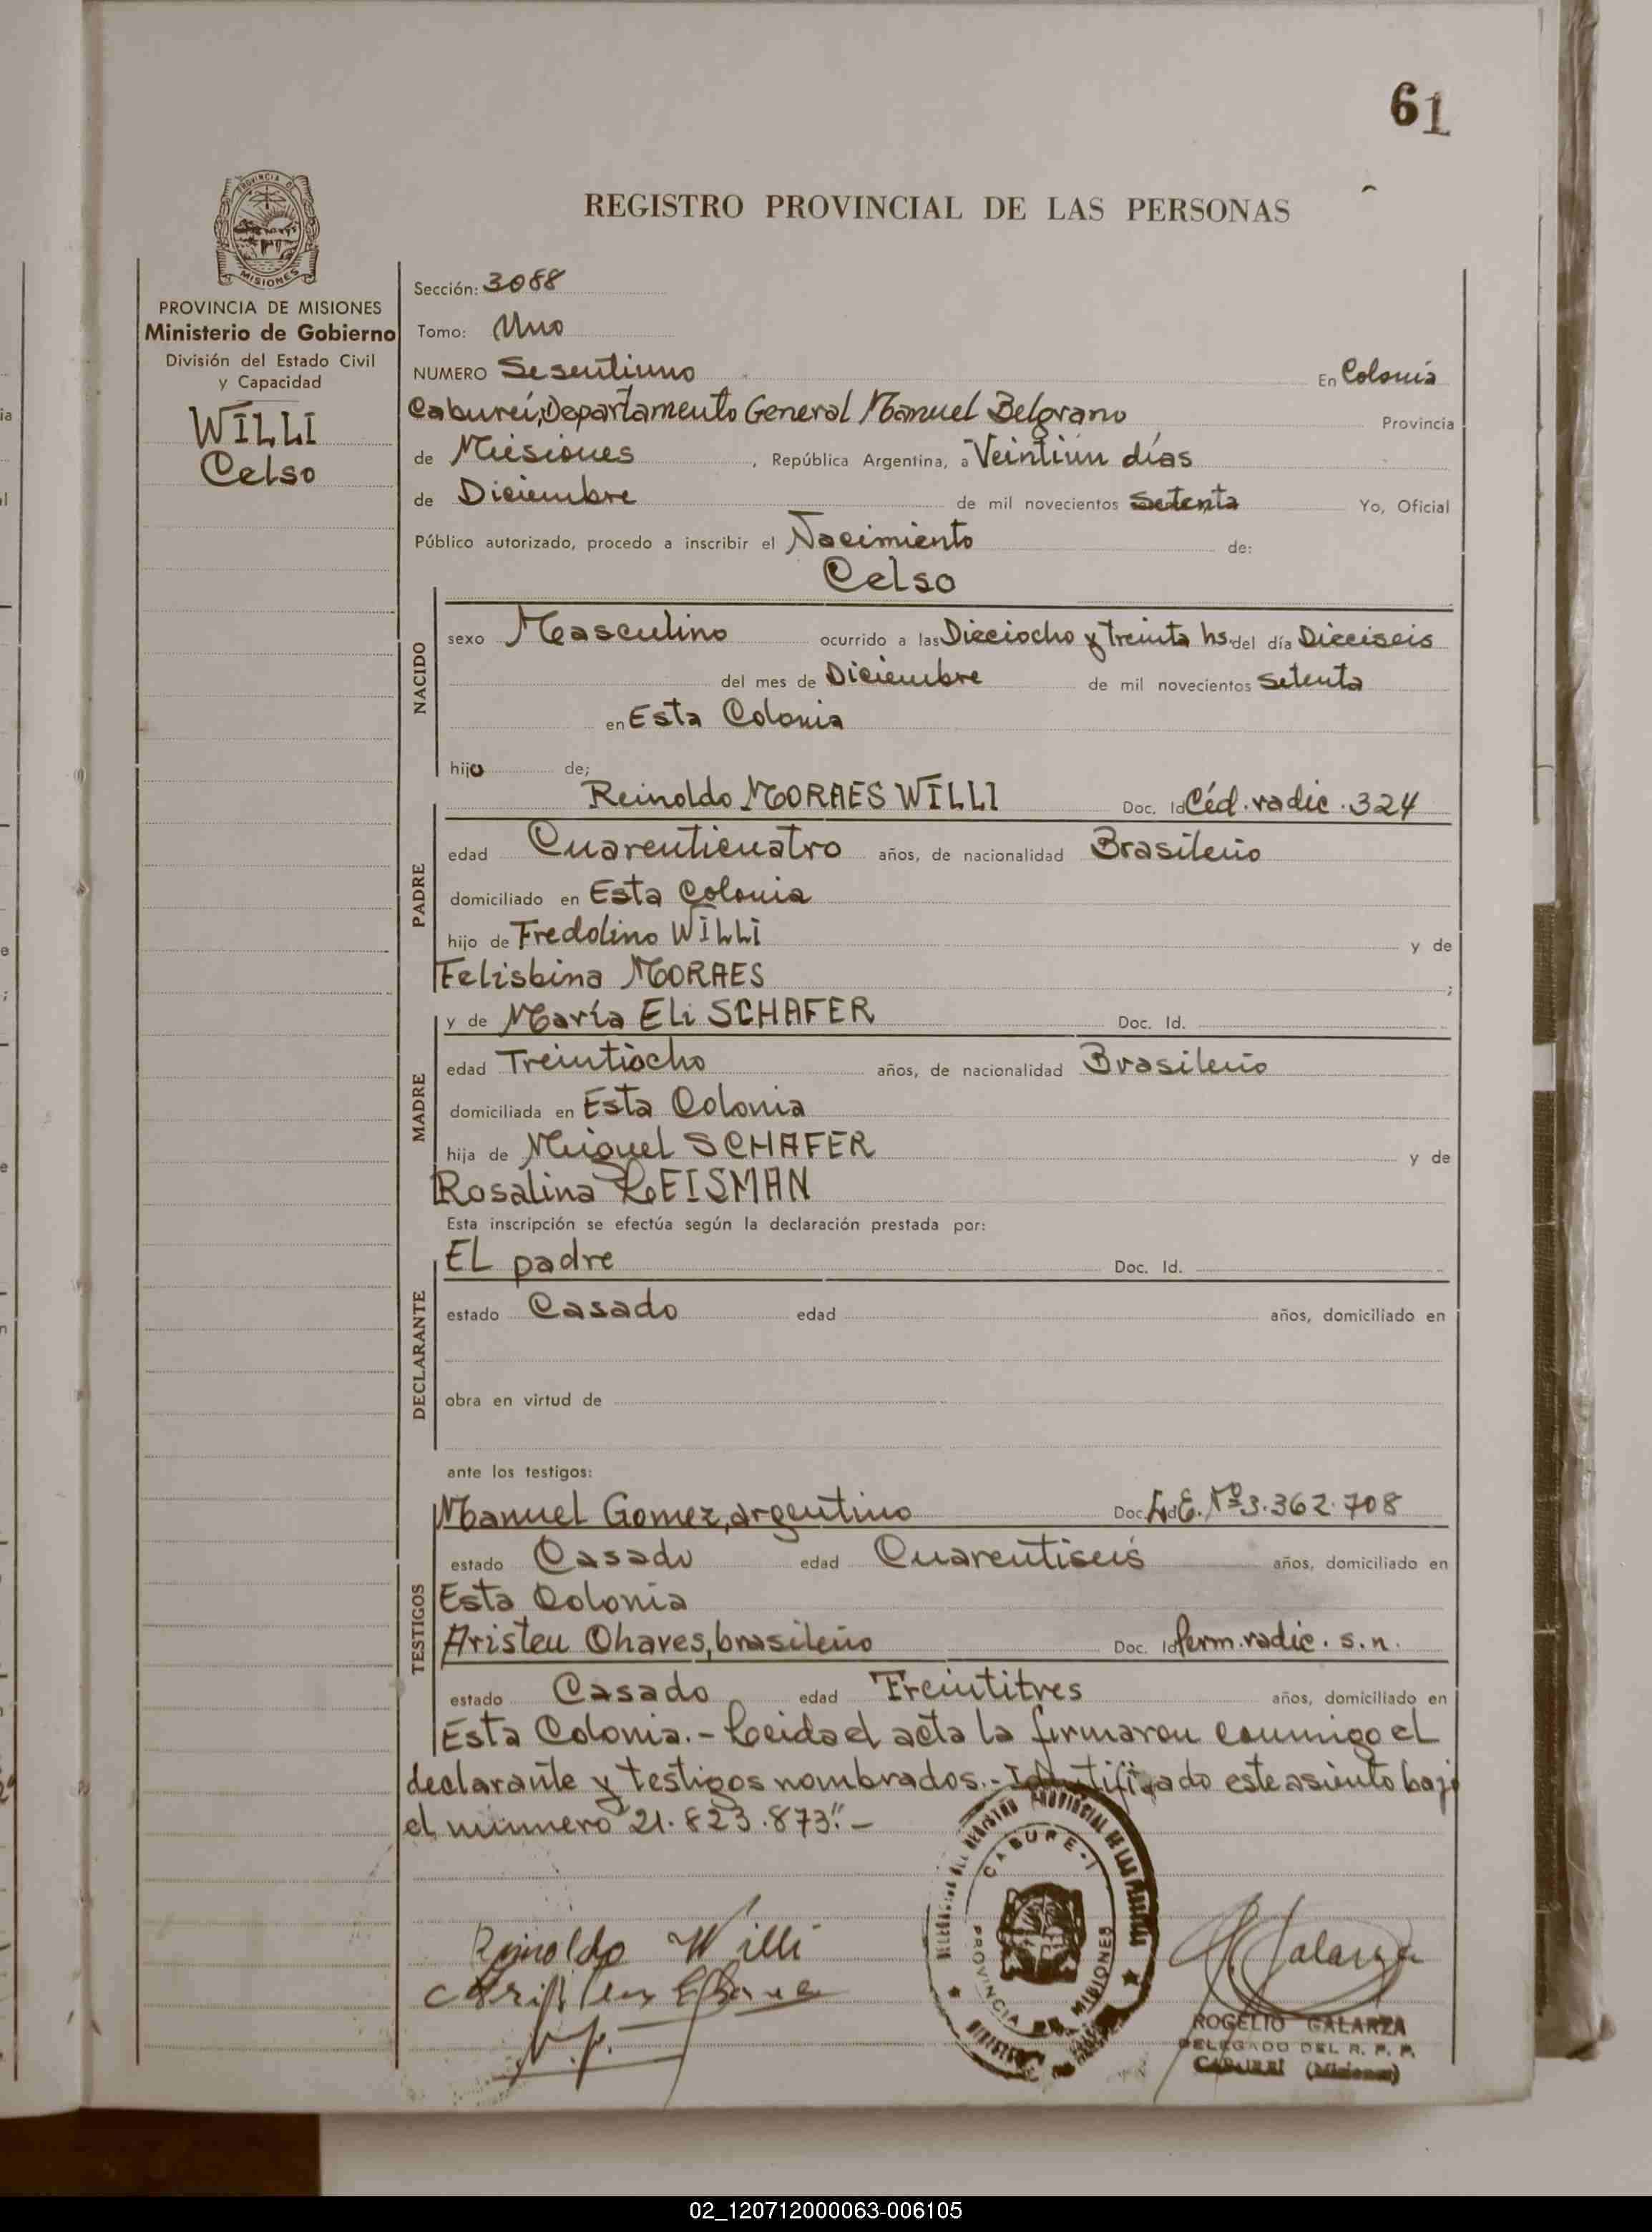 61
PROVINCIA DE
MISIONES
REGISTRO PROVINCIAL DE LAS PERSONAS
PROVINCIA DE MISIONES
Ministerio de Gobierno
División del Estado Civil
y Capacidad
WILLI
Celso
Sección: 3088
Tomo: Uno
NUMERO Sesentiuno En Colonia
Caburei, Departamento General Manuel Belgrano Provincia
de Misiones, República Argentina, a Veintiun días
de Diciembre de mil novecientos Setenta Yo, Oficial
Público autorizado, procedo a inscribir el Nacimiento de:
Celso
NACIDO
sexo Masculino ocurrido a las Dieciocho y treinta hs. del día Dieciseis
del mes de Diciembre de mil novecientos setenta
en Esta Colonia
hijo de;
Reinoldo MORAES WILLI Doc. Id Céd. radic. 324
PADRE
edad Cuarenticuatro años, de nacionalidad Brasileño
domiciliado en Esta Colonia
hijo de Fredolino WILLI y de
Felisbina MORAES ;
y de María Eli SCHAFER Doc. Id.
MADRE
edad Treintiocho años, de nacionalidad Brasileño
domiciliada en Esta Colonia
hija de Miguel SCHAFER y de
Rosalina LEISMAN
Esta inscripción se efectúa según la declaración prestada por:
EL padre Doc. Id.
DECLARANTE
estado Casado edad años, domiciliado en
obra en virtud de
ante los testigos:
Manuel Gomez, argentino Doc. Id L.E. Nº 3.362.708
TESTIGOS
estado Casado edad Cuarentiseis años, domiciliado en
Esta Colonia
Aristeu Chaves, brasileño Doc. Id Perm. radic. s.n.
estado Casado edad Treintitres años, domiciliado en
Esta Colonia.- Leida el acta la firmaron conmigo el
declarante y testigos nombrados.- Identificado este asiento bajo
el número "21.823.873".-
Reinoldo Willi
CABURE-I
PROVINCIA DE MISIONES
Galarza
ROGELIO GALARZA
DELEGADO DEL R. P. P.
CABUREI (Misiones)
02_120712000063-006105